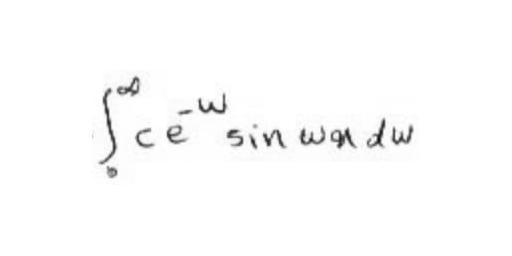 ∫₀^∞ c e^{-w} sin wx dw